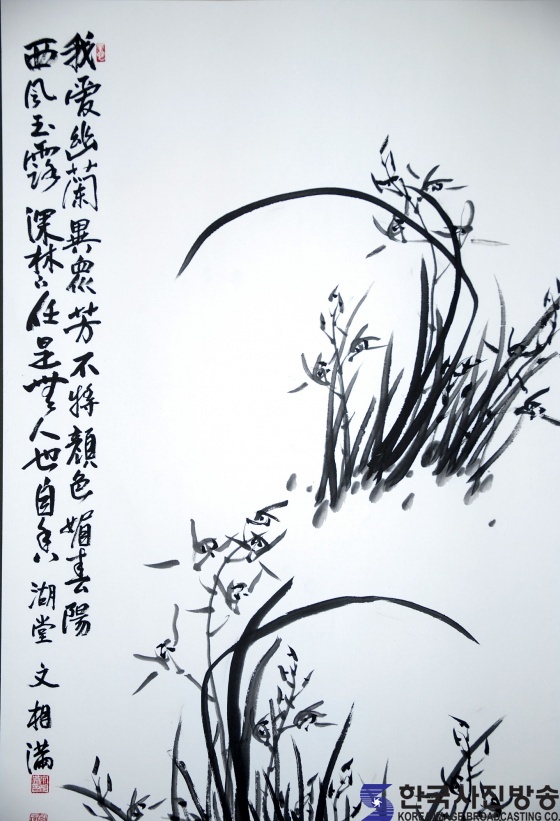 我愛幽蘭異衆芳不將顔色媚春陽
西風玉露深林下任是無人也自香 湖堂 文相滿
한국사진방송
KOREA IMAGE BROADCASTING CO